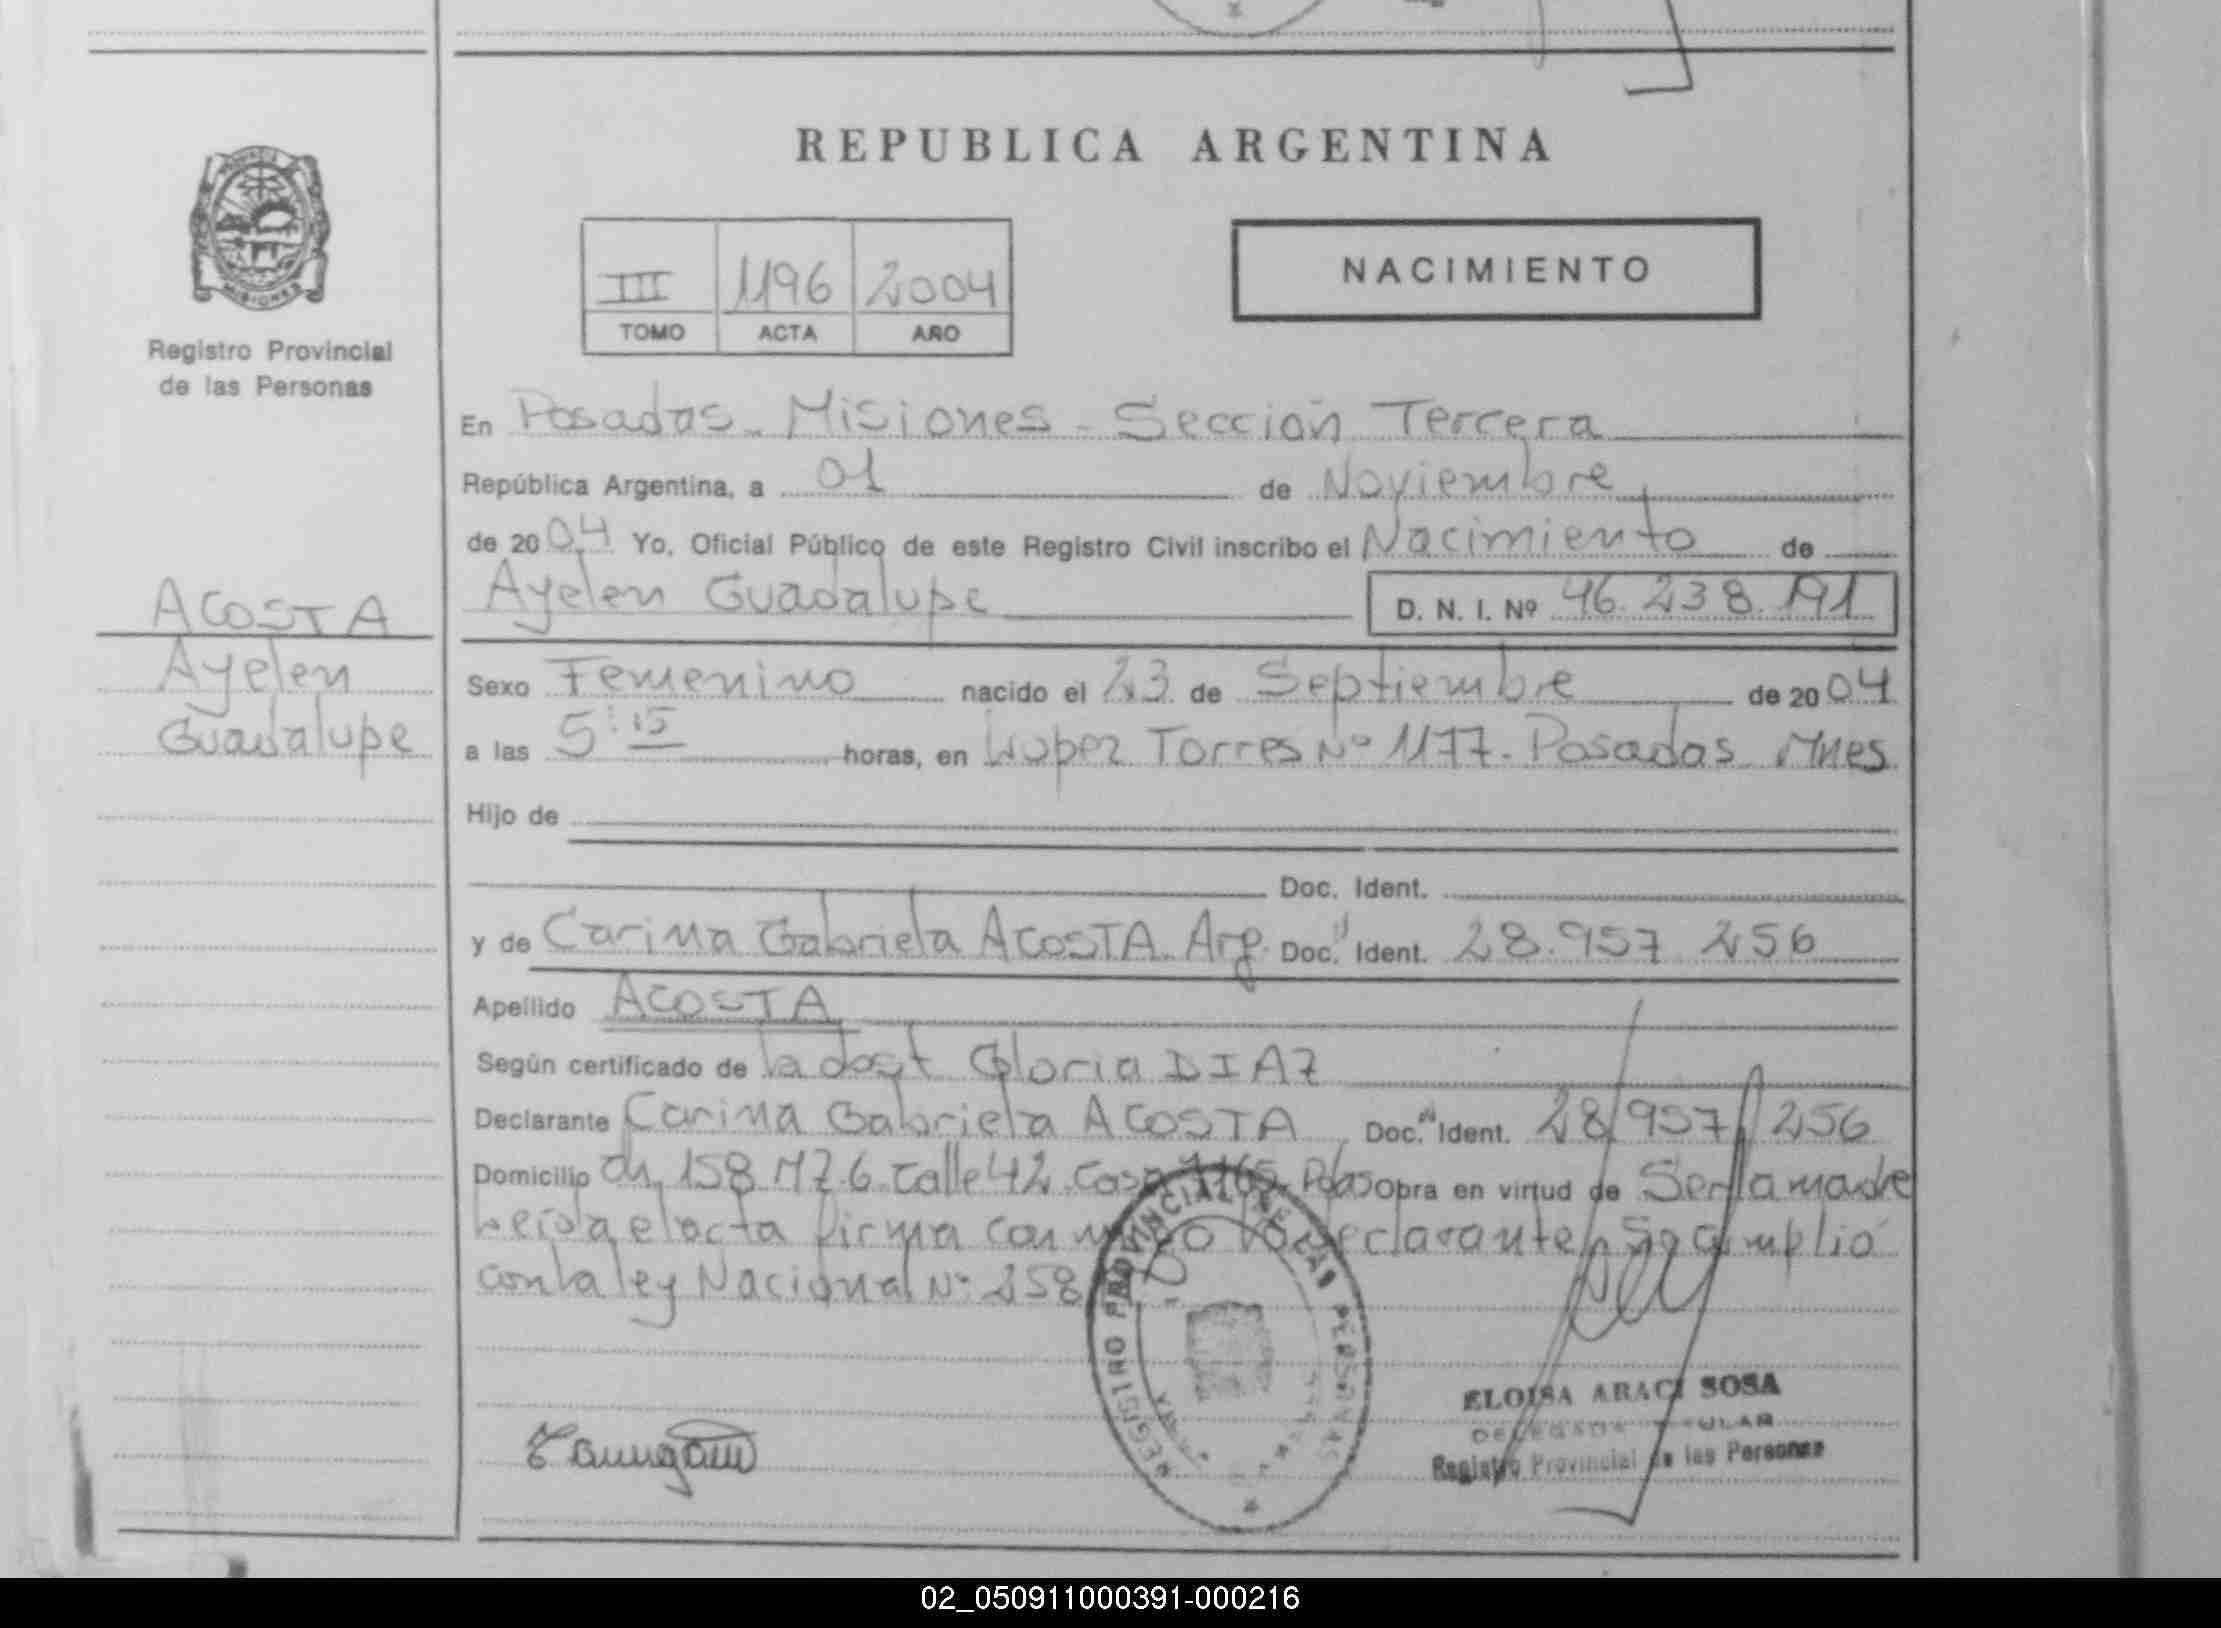 REPUBLICA ARGENTINA
PROVINCIA
MISIONES
Registro Provincial
de las Personas
III 1196 2004
TOMO ACTA AÑO
NACIMIENTO
En Posadas - Misiones - Sección Tercera
República Argentina, a 01 de Noviembre
de 2004 Yo, Oficial Público de este Registro Civil inscribo el Nacimiento de
Ayelen Guadalupe D. N. I. Nº 46.238.191
ACOSTA
Ayelen
Guadalupe
Sexo Femenino nacido el 23 de Septiembre de 2004
a las 5:15 horas, en López Torres Nº 1177 - Posadas Mnes
Hijo de
Doc. Ident.
y de Carina Gabriela ACOSTA Arg. Doc. Ident. 28.957.256
Apellido ACOSTA
Según certificado de la dost Gloria DIAZ
Declarante Carina Gabriela ACOSTA Doc. Ident. 28.957.256
Domicilio Ch. 158 Mz 6 Calle 42 Casa Pdas Obra en virtud de Ser la madre
Leida el acta firma declarante, se cumplió
con la ley Nacional Nº 258
REGISTRO PROVINCIAL DE LAS PERSONAS
ELOISA ARACI SOSA
DELEGADA TITULAR
Registro Provincial de las Personas
02_050911000391-000216